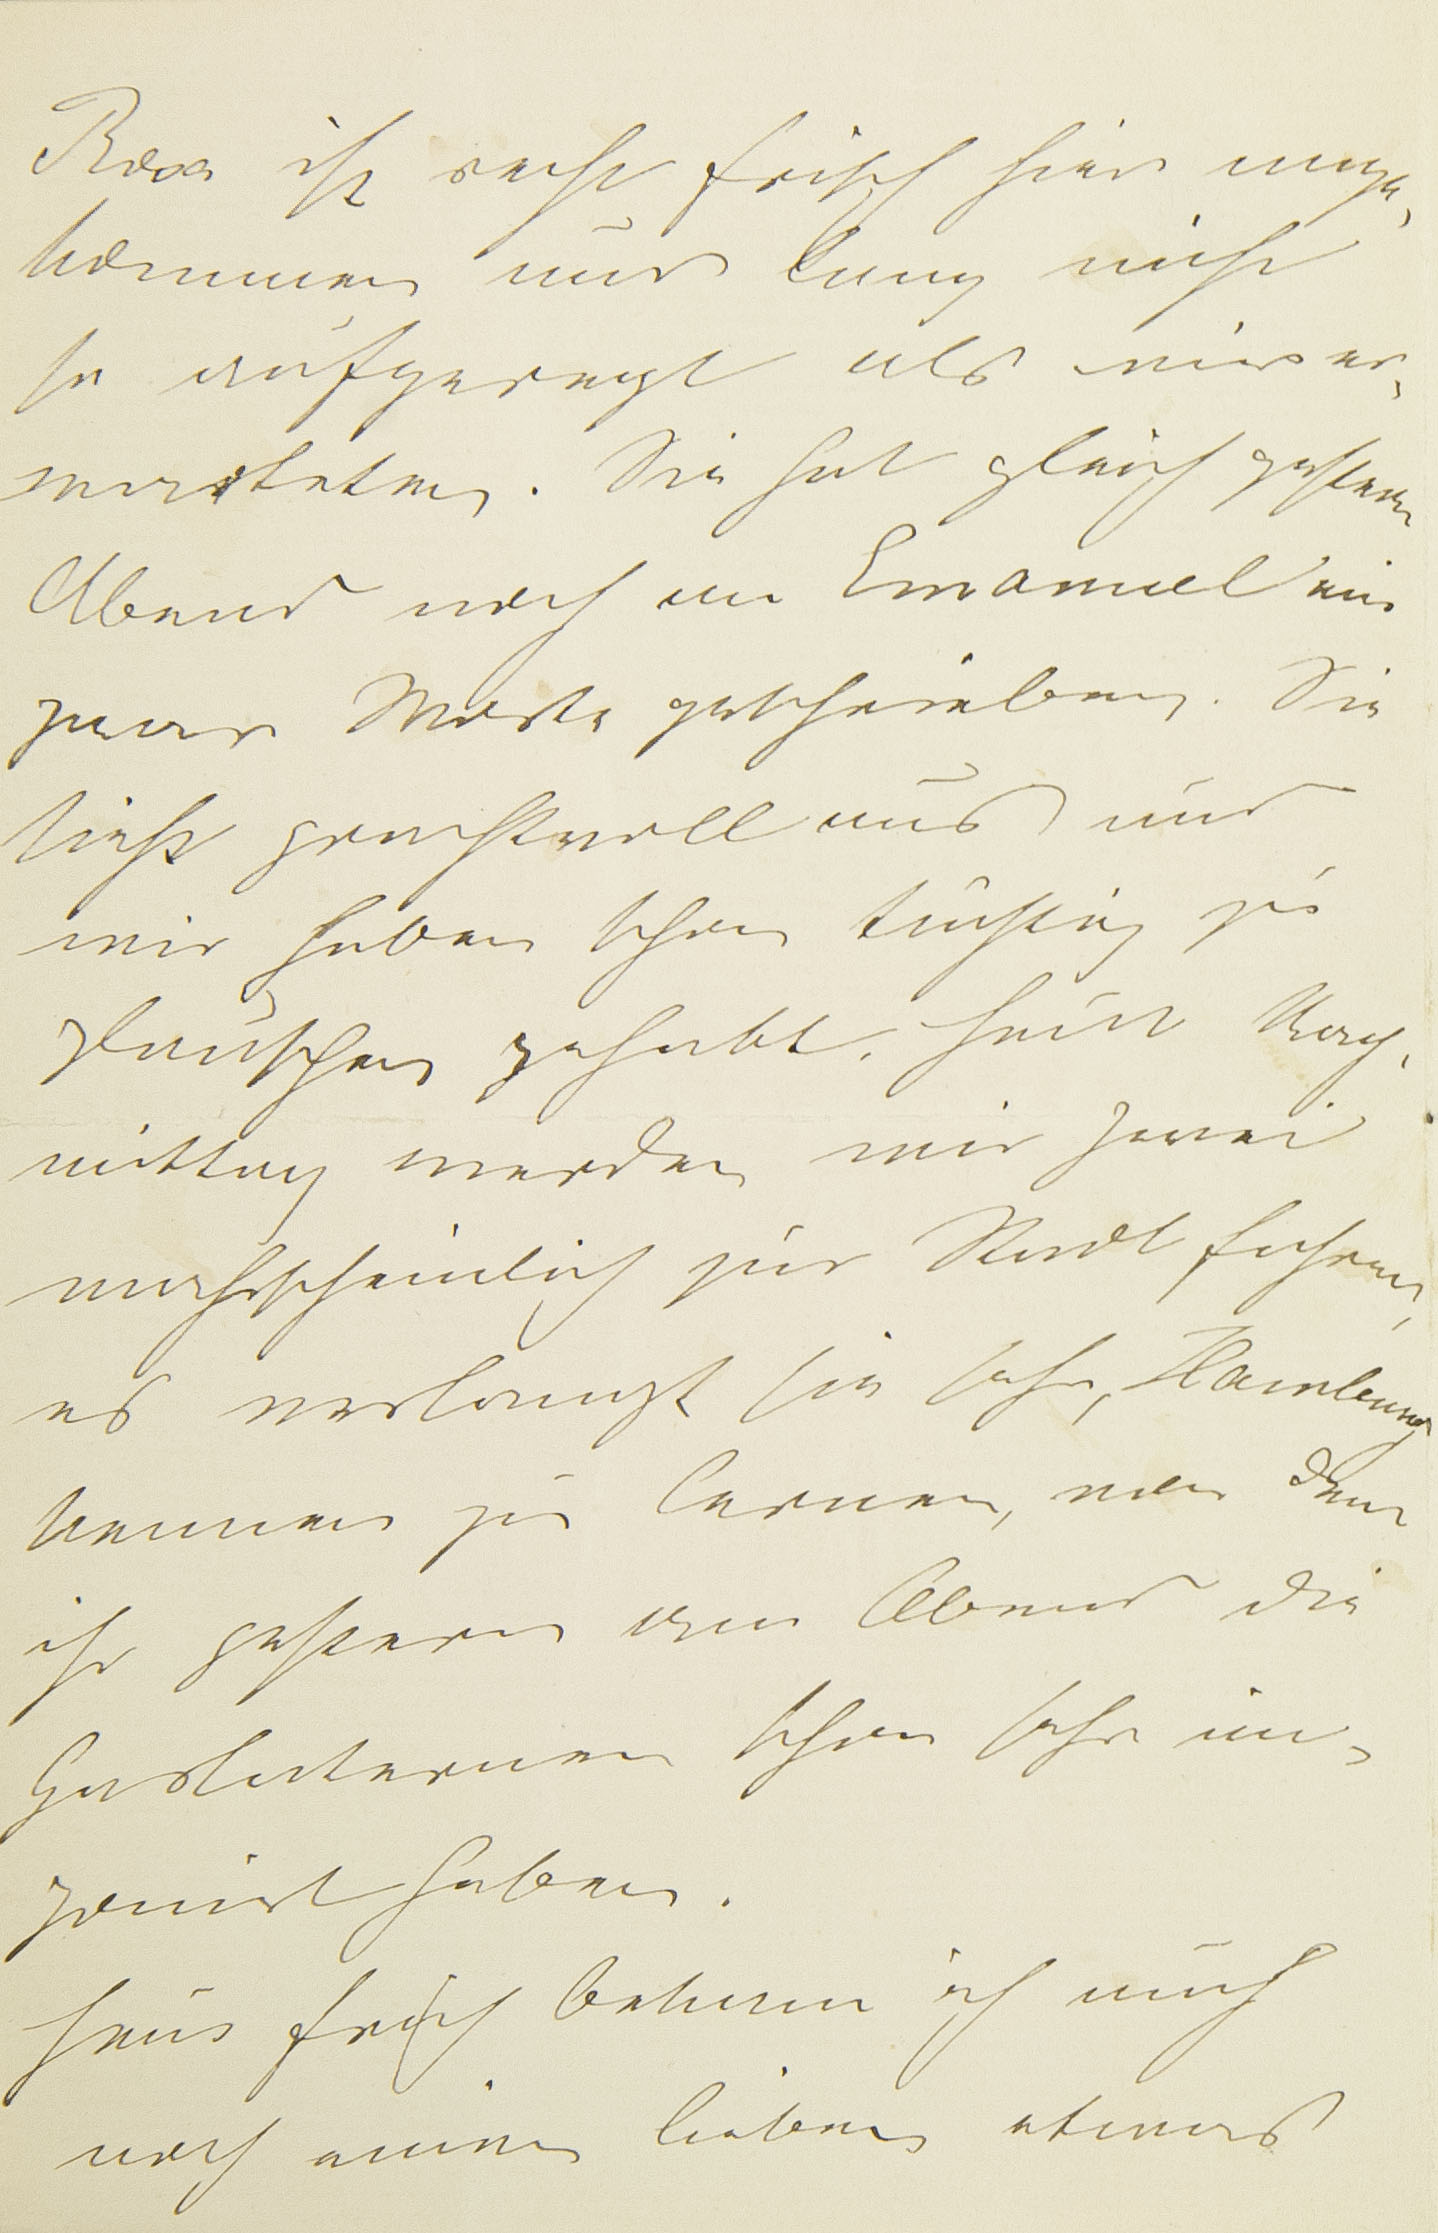 Rosa ist recht frisch hier ange-
kommen und lang nicht
so aufgeregt als wir er-
warteten. Sie hat gleich gestern
Abend noch an Emanuel ein
paar Worte geschrieben. Sie
sieht prachtvoll aus und
wir haben schon tüchtig zu
plauschen gehabt. Heut Nach-
mittag werden wir zwei
wahrscheinlich zur Stadt fahren,
es verlangt sie sehr, Hamburg
kennen zu lernen, von dem
ihr gestern am Abend die
Gaslaternen schon sehr im-
ponirt haben.
Heut früh bekam ich auch
noch einen lieben etwas